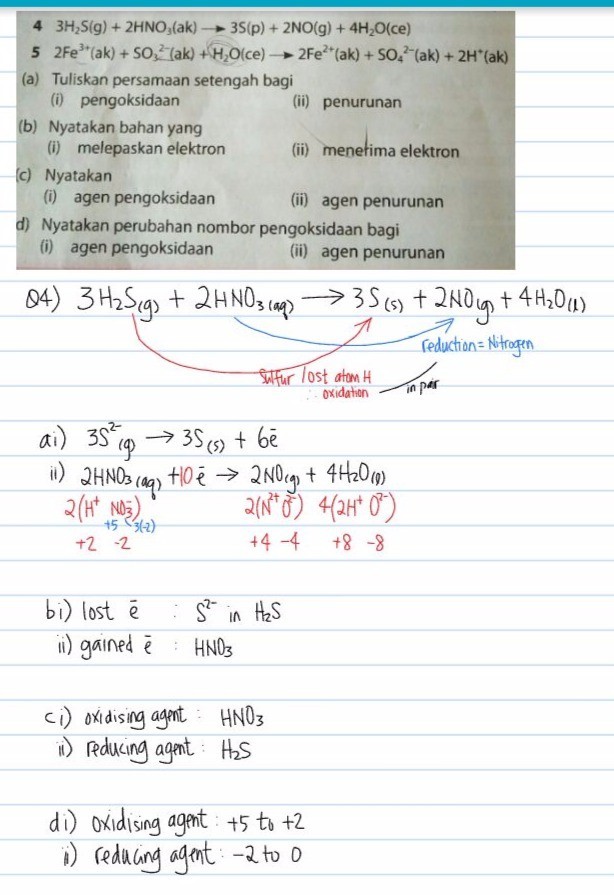 4 3H₂S(g) + 2HNO₃(ak) → 3S(p) + 2NO(g) + 4H₂O(ce)
5 2Fe³⁺(ak) + SO₃²⁻(ak) + H₂O(ce) → 2Fe²⁺(ak) + SO₄²⁻(ak) + 2H⁺(ak)
(a) Tuliskan persamaan setengah bagi
(i) pengoksidaan (ii) penurunan
(b) Nyatakan bahan yang
(i) melepaskan elektron (ii) menerima elektron
(c) Nyatakan
(i) agen pengoksidaan (ii) agen penurunan
d) Nyatakan perubahan nombor pengoksidaan bagi
(i) agen pengoksidaan (ii) agen penurunan
Q4) 3H₂S(g) + 2HNO₃(aq) → 3S(s) + 2NO(g) + 4H₂O(l)
reduction = Nitrogen
Sulfur lost atom H
∴ oxidation in pair
ai) 3S²⁻(g) → 3S(s) + 6ē
ii) 2HNO₃(aq) + 10ē → 2NO(g) + 4H₂O(l)
2(H⁺ NO₃⁻) 2(N²⁺ O²⁻) 4(2H⁺ O²⁻)
+5 3(-2)
+2 -2 +4 -4 +8 -8
bi) lost ē : S²⁻ in H₂S
ii) gained ē : HNO₃
ci) oxidising agent : HNO₃
ii) reducing agent : H₂S
di) oxidising agent : +5 to +2
ii) reducing agent : -2 to 0